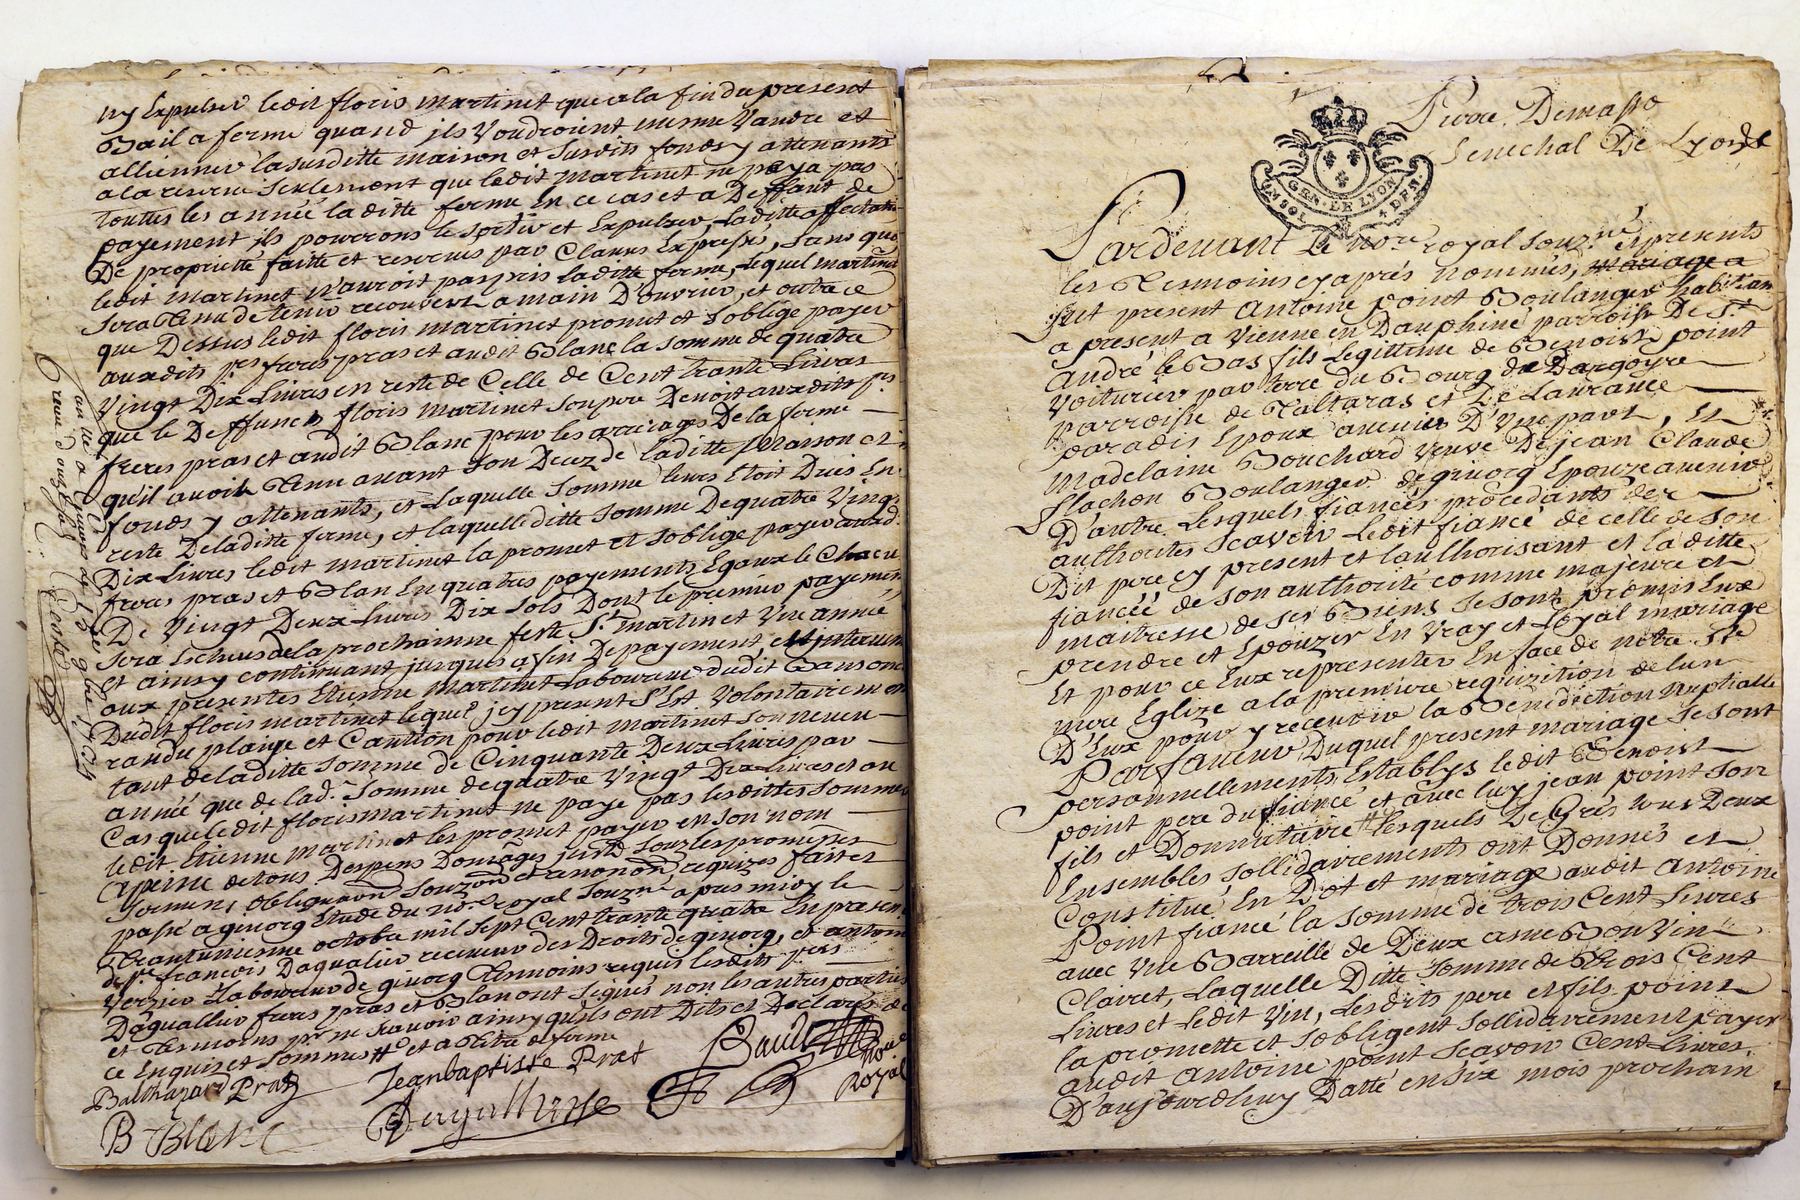 ny Expulser ledit floris martinet que a la fin du present
Bail a ferme quand jls Voudroient mesme Vandre et
allienner la susditte maison et susdits fonds y attenants
a la reserve seulement que ledit martinet ne paya pas
toutes les année la ditte ferme En ce cas et a Deffaut de
payement jls pourrons le sortir et Expulser, laditte affectation
De proprietté faitte et reservés par Clauses Expresses, sans quoy
ledit martinet n'auroit pas pris laditte ferme, lequel martinet
sera tenu de tenir recouvert a main D'ouvrier, et outre ce
que Dessus ledit floris martinet promet et s'oblige payer
auxdits frères pras et audit Blanc la somme de quatre
Vingt Dix Livres en reste de Celle de Cent trante Livres
que le Deffunct floris martinet son pere Devoit auxdits
freres pras et audit Blanc pour les arrerages De la ferme
qu'il avoit tenu avant son Decez de laditte maison et
fonds y attenants, et Laquelle somme leurs Etoit Duës En
reste De laditte ferme, et laquelle ditte somme De quatre Vingt
Dix Livres ledit martinet la promet et s'oblige payer auxd.
freres pras et Blan En quatres payements Egaux le Chacun
De Vingt Deux Livres Dix sols Dont le premier payement
sera Escheus de la prochainne feste St martin et Une année
et ainsy continuant jusques a fin De payement, et intervenu
aux presentes Etienne Martinet Laboureur dudit
Dudit floris martinet lequel jcy present S'Est Volontairement
randu plaige et Caution pour ledit martinet son neveu
tant de laditte somme De Cinquante Deux Livres par
année que de lad. somme de quatre Vingt Dix Livres et au
Cas que ledit floris martinet ne paye pas lesdittes sommes
ledit Etienne martinet les promet payer en son nom
A peine de tous Despens Domâges sous les promesses
soumons obligaõn et renonõn requizes faites
passé a givorg Etude du nore royal souzné apres midy le
trantunieme octobre mil sept Cent trante quatre En presence
de sr francois Daquallier receveur des Droits de givorg, et antoine
Verzier Laboureur de givorg tesmoins requis lesdits srs
Daquallier freres pras et Blan ont signés non les autres parties
et tesmoins pr ne scavoir ainsy qu'ils ont Dits et Declarés De
ce Enquis et sommés et a titre de ferme
Balthazard Pras
Jean baptiste Prat
Royal
B Blanc
Pierre Demasso
Senechal De Lyon
GEN. DE LYON
Pardevant Le nore royal souzné et presents
les tesmoins cy aprés nommés, mariage a
fut present Antoine point Boulanger habitant
a present a Vienne en Dauphiné parroisse De St
André le Bas fils Legittime de Benoist point
Voiturier par terre du Bourg de Dargoyre
parroisse de taltaras et De Laurance
paradis Epoux avenir D'Vne part, Et
Madelaine Bouchard Veuve De jean Claude
flachon Boulanger de givorg Epouze avenir
D'autre. Lesquels fiancés procedants de
authorités scavoir Ledit fiancé de celle de son
Dit pere cy present et l'authorisant et la ditte
fiancée de son authorité comme majeure et
maitresse de ses Biens se sont promis Eux
prendre et Epouzer En Vray et Loyal mariage
Et pour ce Eux representer En face de notre Ste
mere Eglize a la premiere requizition de lun
D'Eux pour y recevoir la Benediction Nuptialle
Par faveur Duquel present mariage se sont
personnellements Establys ledit Benoist
point pere du fiancé et avec luy jean point son
fils et Donnataire lesquels De Gres tous Deux
Ensembles sollidairements ont Donnés et
Constitué En Dot et mariage audit Antoine
Point fiancé la somme de trois Cent Livres
avec Une Barreille de Deux asnés Bon Vin
Clairet, Laquelle Ditte somme de trois Cent
Livres et ledit Vin, lesdits pere et fils point
la promette et s'obligent sollidairement payer
audit Antoine point scavoir Cent Livres
D'aujourdhuy Datte en six mois prochain